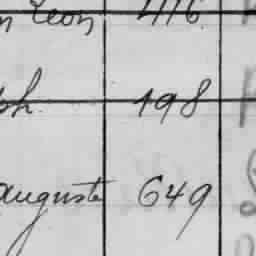 n Léon 416
ph. 198
auguste 649